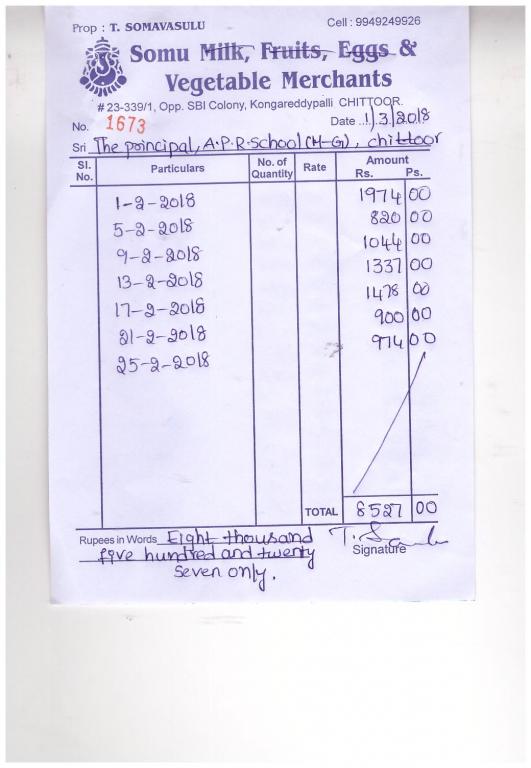 Prop : T. SOMAVASULU Cell : 9949249926
Somu Milk, Fruits, Eggs &
Vegetable Merchants
# 23-339/1, Opp. SBI Colony, Kongareddypalli CHITTOOR.
No. 1673 Date ..1/3/2018
Sri The principal, A.P.R.School (M-G), chittoor
Sl. No. Particulars No. of Quantity Rate Amount Rs. Ps.
1-2-2018 1974 00
5-2-2018 820 00
9-2-2018 1044 00
13-2-2018 1337 00
17-2-2018 1478 00
21-2-2018 900 00
25-2-2018 974 00
TOTAL 8527 00
Rupees in Words Eight thousand
five hundred and twenty
seven only.
Signature